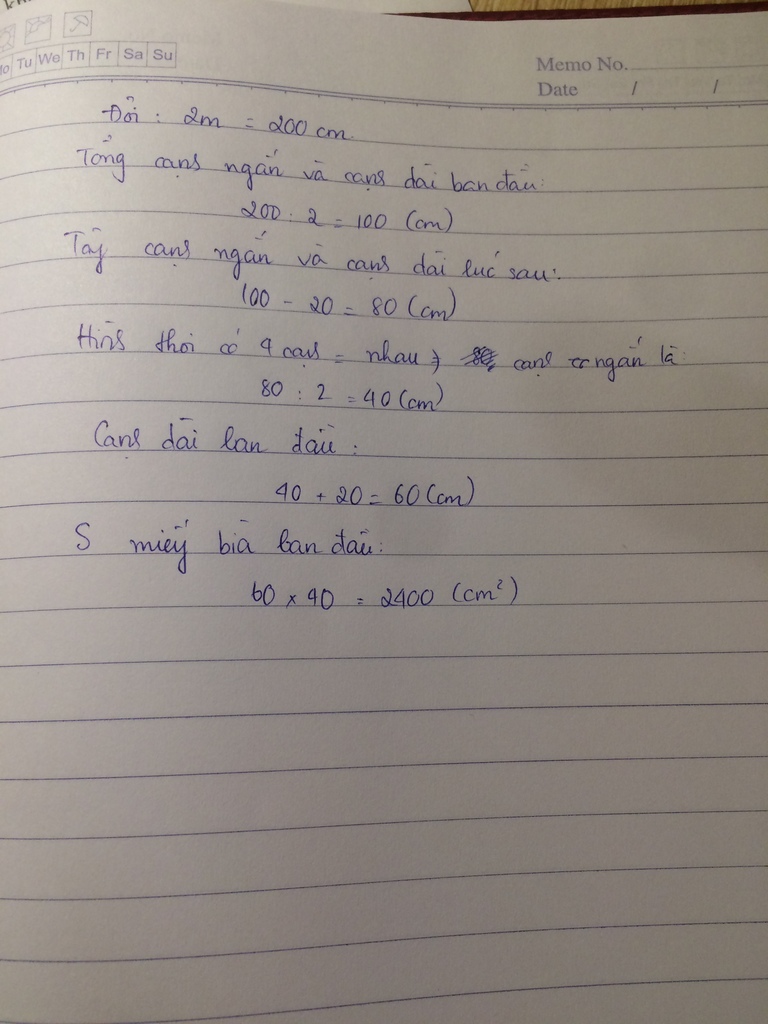 Mo Tu We Th Fr Sa Su
Memo No.
Date / /
Đổi : 2m = 200 cm
Tổng cạnh ngắn và cạnh dài ban đầu:
200 : 2 = 100 (cm)
cạnh ngắn và cạnh dài lúc sau:
100 - 20 = 80 (cm)
Hình thoi có 4 cạnh = nhau cạnh ngắn là:
80 : 2 = 40 (cm)
Cạnh dài ban đầu :
40 + 20 = 60 (cm)
S miếng bìa ban đầu:
60 x 40 = 2400 (cm²)